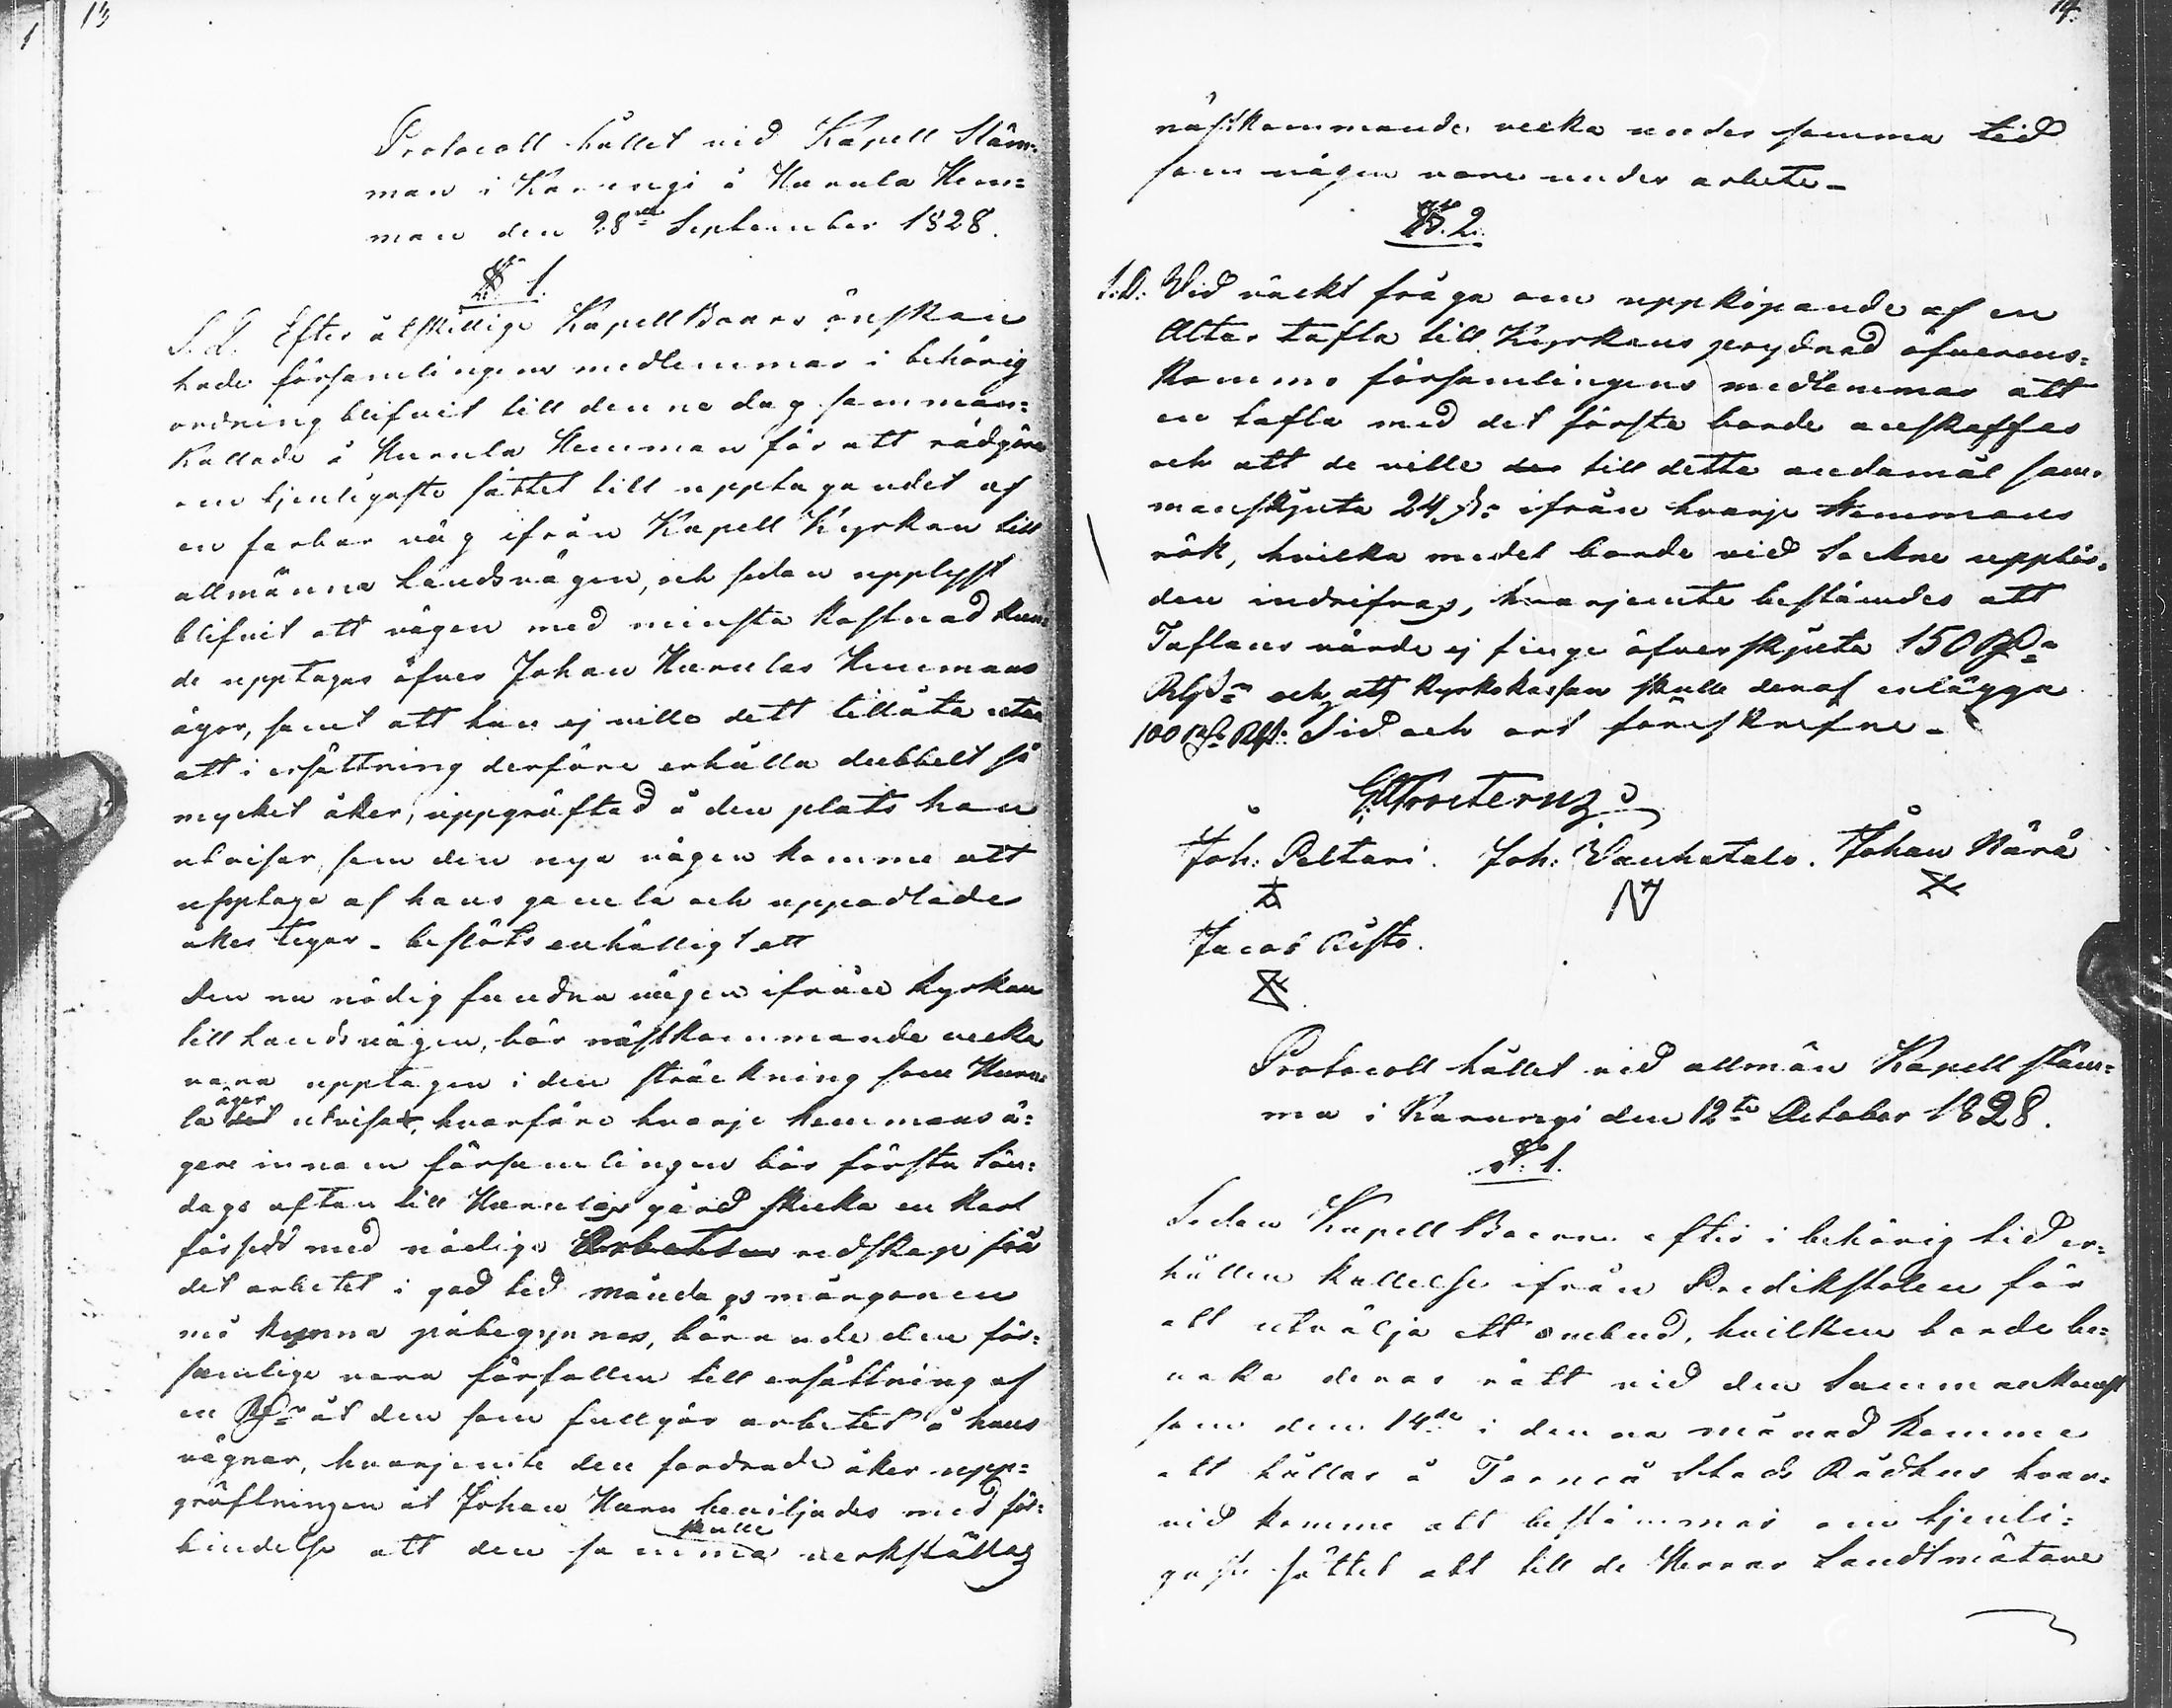 13
Protocoll hållet vid Kapell Stäm=
man i Karungi å Hurula Hem=
man den 28de September 1828.
§ 1.
S. d. Efter åtskillige Kapell Boars önskan
hade församlingens medlemmar i behörig
ordning blifvit till denne dag samman=
kallade å Hurula Hemman för att rådgöra
om tjenligaste sättet till upptagandet af
en farbar väg ifrån Kapell Kyrkan till
allmänna Landsvägen, och sedan upplyst
blifvit att vägen med minsta kostnad kun=
de upptagas öfver Johan Hurulas Hemmans
ägor, samt att han ej ville dett tillåta utan
att i ersättning derföre erhålla dubbelt så
mycket åker, uppgräftad å den plats han
utvisar, som den nya vägen komme att
upptaga af hans gamla och uppodlade
åker tegar - beslöts enhälligt att
Den nu nödig fundna vägen ifrån Kyrkan
till Landsvägen, bör nästkommande vecka
vara upptagen i den sträckning som Huru=
äger
la det utvisat, hvarföre hvarje hemmans ä=
gare innom församlingen bör första Sön=
dags aftan till Hurulas gård skicka en karl
försedd med nödige Arbetses redskap så
det arbetet i god tid måndags morgonen
må kunna påbegynnas, börande den för=
sumlige vara förfallen till ersättning af
en Rd åt den som fullgör arbetet å hans
vägnar, hvarjemte den fordrade åker upp=
gräftningen åt Johan Huru beviljades med för=
skulle
bindelse att den samma verkställas
14.
nästkommande vecka under samma tid
som vägen vore under arbete -
§. 2.
S. D. Vid väckt fråga om uppköpande af en
Altar tafla till Kyrkans prydnad öfverens=
kommo församlingens medlemmar att
en tafla med det första borde anskaffas
och att de ville der till detta andamål sam=
manskjuta 24 s: ifrån hvarje Hemmans
rök, hvilka medel borde vid Sockne uppbör=
den indrifvas, hvarjemte bestämdes att
Taflans värde ej finge öfverskjuta 150 Rd
Rgs och att Kyrkokassan skulle deraf erlägga
100 Rd Rgs: Tid och ort föreskrefne -
Joh: Peltari. Joh: Vanhatalo. Johan Närä
Jacob Aisto.
Protocoll hållet vid allmän Kapell stäm=
ma i Karungi den 12te October 1828.
§. 1.
Sedan Kapell Boerne efter i behörig tid er=
hållen kallelse ifrån Predikstolen för
att utvälja ett ombud, hvilken borde be=
vaka deras rätt vid den Sammankomst
som den 14de i denna månad komme
att hållas å Torneå Stads Rådhus hvar=
vid komme att bestämmas om tjenli=
gaste sättet att till de Herrar Landtmätare